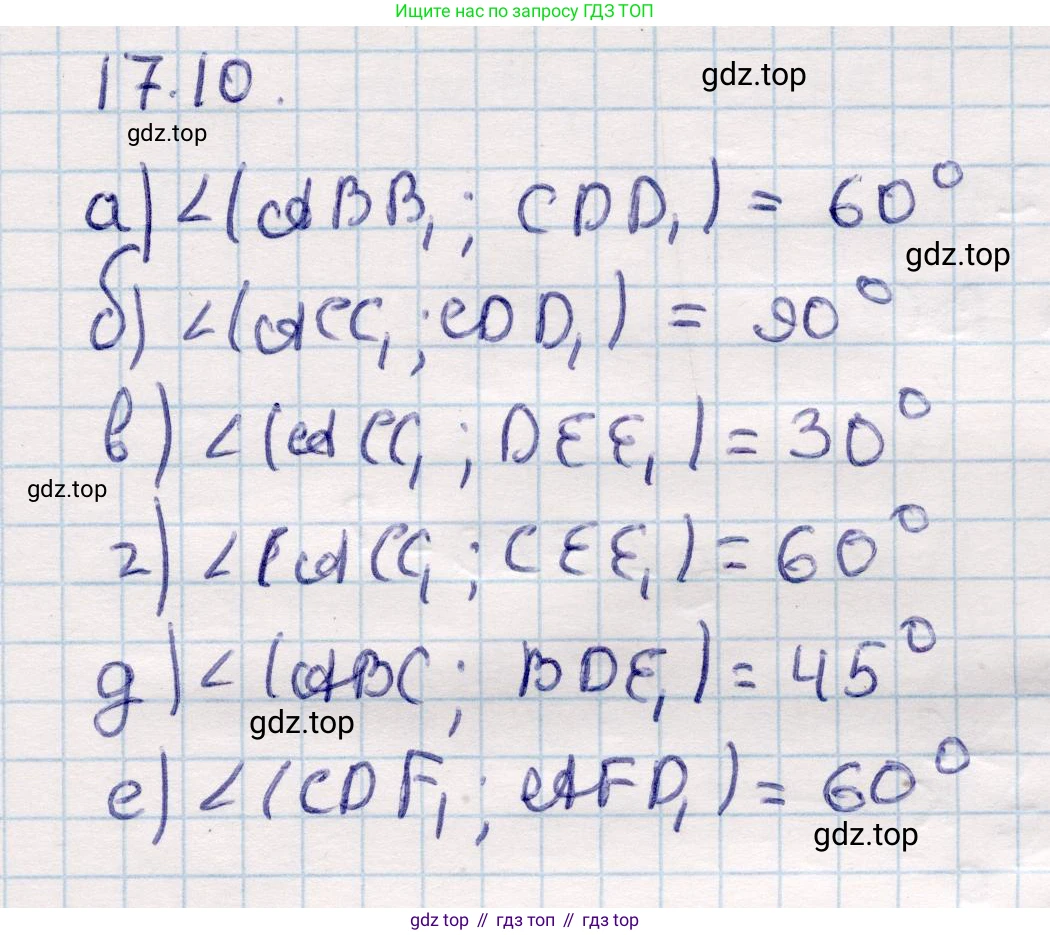 Ищите нас по запросу ГДЗ ТОП
17.10.
gdz.top
gdz.top
а) ∠(ABB₁; CDD₁) = 60°
gdz.top
б) ∠(ACC₁; CDD₁) = 90°
в) ∠(ACC₁; DEE₁) = 30°
gdz.top
г) ∠(ACC₁; CEE₁) = 60°
д) ∠(ABC; BDE₁) = 45°
gdz.top
е) ∠(CDF₁; AFD₁) = 60°
gdz.top
gdz top // гдз топ // гдз top